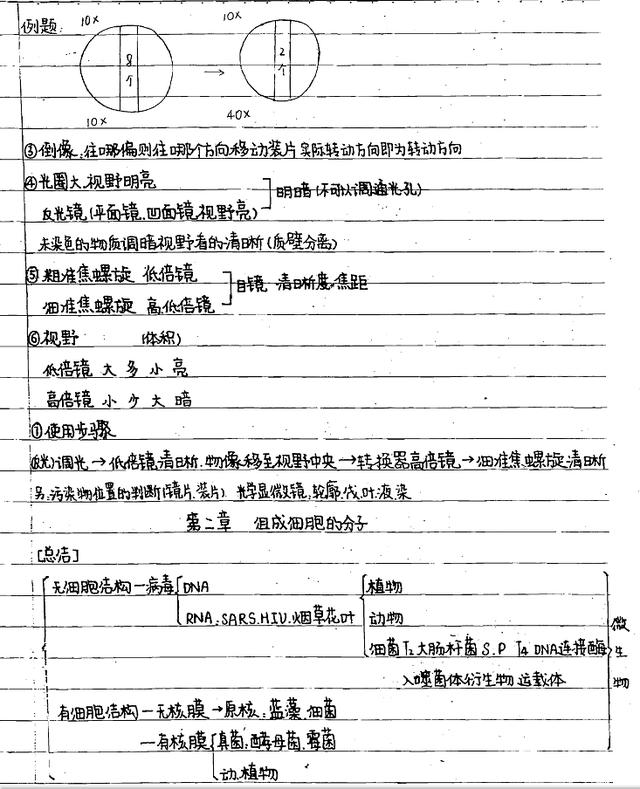 例题:
10x 10x
8个 → 2个
10x 40x
③倒像:往哪偏则往哪个方向移动装片 实际转动方向即为转动方向
④光圈大.视野明亮
明暗(不可以调通光孔)
反光镜(平面镜.凹面镜.视野亮)
未染色的物质调暗视野看的清晰(质壁分离)
⑤粗准焦螺旋 低倍镜
目镜 清晰度.焦距
细准焦螺旋 高.低倍镜
⑥视野 (体积)
低倍镜 大 多 小 亮
高倍镜 小 少 大 暗
①使用步骤
调光→低倍镜清晰.物像移至视野中央→转换器高倍镜→细准焦螺旋清晰
另:污染物位置的判断(镜片.装片) 光学显微镜:轮廓.伐.叶.液.染
第二章 组成细胞的分子
[总结]
无细胞结构—病毒 DNA 植物
RNA:SARS.HIV.烟草花叶 动物
细菌T₂大肠杆菌 S.P T4 DNA连接酶
入噬菌体衍生物 运载体
微生物
有细胞结构—无核膜→原核:蓝藻.细菌
—有核膜 真菌:酵母菌.霉菌
动.植物